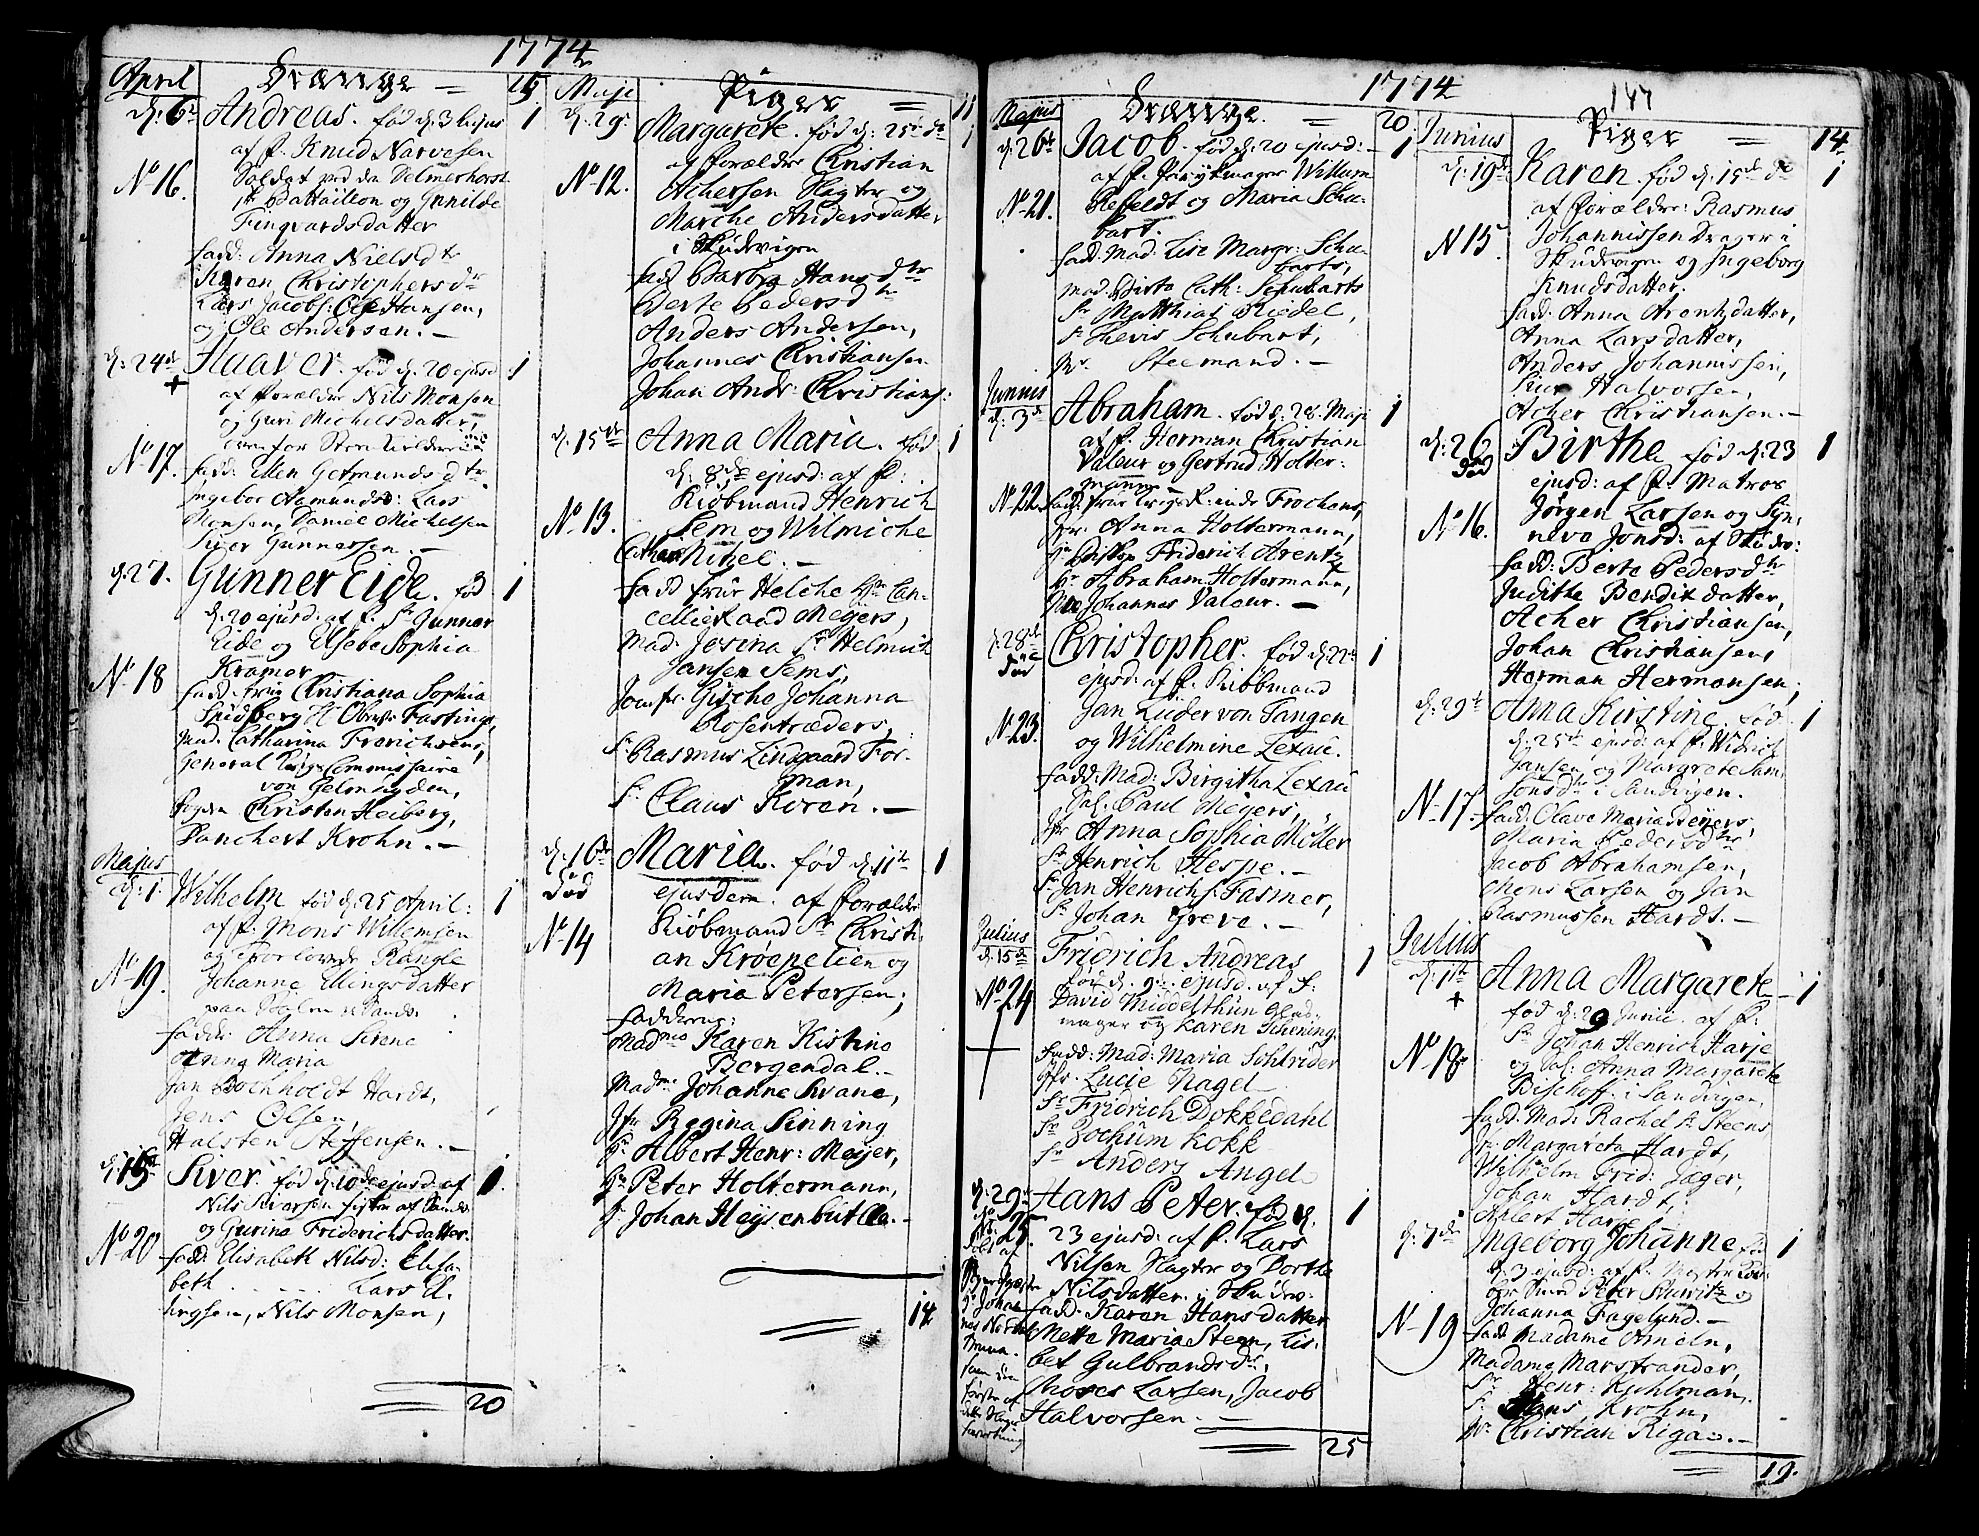 1774
April
Drænge 15
d: 6te Andreas. fød d: 3 hujus 1
af f. Knud Narvesen
No 16. Soldat ved den Delmerhorst
1te Battaillon og Gunilde
Fingvardsdatter
fadd: Anna Nielsdtr
Karen Christophersdr
Lars Jacobs: Ole Hansen,
og Ole Andersen. —
d: 24de Haaver. fød d. 20 ejusd 1
+
af forældre Nils Monsen
og Guri Michelsdatter,
No 17.
fadd: Ellen Getmundsdtr
Ingebor Aamundsd: Lars
Monsen, Daniel Michelsen
Siver Gunnersen. —
d. 27. Gunner Eide. fød 1
d. 20 ejusd: af f. Sr Gunner
Eide og Elsebe Sophia
No 18 Kramer
fadd. frue Christiana Sophia
Obrest Fastings,
mad. Catharina Frerichsens,
General Krigs Commissaire
von Gelmuyden,
Christen Heiberg,
Danckert Krohn. —
Majus
d: 1 Wilhelm fød d. 25 April: 1
af f. Mons Willemsen
No 19. Johanne Ellingsdatter
fadd: Anna Sirene
Anna Maria
Jan Bochholdt Hardt,
Jens Olsen,
Halsten Steffensen. —
d: 15de Siver. fød d. 10de ejusd. af 1
Nils Siversen fisker af Sandv:
og Gurina Friderichsdatter.
No 20 fadd: Elisabeth Nilsd: Elisa-
beth ........ Lars El.
lingsen, Nils Monsen,
20
Maji
Piger 11
d: 29 Margarete. fød d: 25de do 1
af forældre Christian
No 12. Achersen Flagter og
Marthe Andersdatter
i Skudevigen
fad Barbra Hansdtr
Berte Pedersdtr
Anders Andersen,
Johannes Christiansen
Johan Andr: Christians:
d: 15de Anna Maria. fød 1
d: 8de ejusd: af f:
Kiøbmand Henrich
No 13. Sem og Wilmiche
Cathar: Nibel. —
fadd frur Helche Hr Can-
celliraad Meyers,
Mad. Josina Sr Helmich
Jansen Sems,
Jomfr. Gische Johanna
Rosentræders,
Sr Rasmus Lindgaard For-
man,
Sr Claus Koren. —
d: 16de Maria. fød d: 11te 1
Død
ejusdem. af forældre
Kiøbmand Sr Christi-
No 14 an Krøepelien og
Maria Petersen;
fadderne:
Madme Karen Kistine
Bergendal. —
Madme Johanne Svane,
Jfr Regina Sinning
Sr Albert Henr: Meyer,
Hr Peter Holtermann,
Sr Johan Heysenbüttel. —
14
1774
Majus
Drænge. 20
d: 26de Jacob. fød d. 20 ejusd: 1
af f. Parykmager Willum
No 21. Refeldt og Maria Schu-
bart.
fadd: Mad. Lise Margr: Schu
barts,
mad. Birte Cath: Schubarts
Sr Matthias Riedel,
Sr Levis Schubart,
Mr Steemand. —
Junius
d. 3de Abraham. fød d: 28. Maji 1
af f. Herman Christian
Valeur og Gertrud Holter-
mann
No 22.
Anna Holtermann,
Hr Biskop Friderich Arentz
Hr Abraham Holtermann,
Johannes Valeur. —
d: 28de Christopher. fød d. 22de 1
Død
ejusd: af f. Kiøbmand
Jan Lüder von Tangen
No 23. og Wilhelmine Lexau.
fadd: Mad: Birgitha Lexau
Sal. Paul Meyers,
Jfr Anna Sophia Müller
Sr Henrich Hespe. —
Sr Jan Henrich Fasmer,
Sr Johan Greve. —
Julius
d: 15de Fridrich Andreas 1
fød d. 9de ejusd. af f:
No 24 David Middelthun Glas-
mager og Karen Schening.
fadd: Mad: Maria Schreider
Jfr. Lucie Nagel
Sr Fridrich Dokkedahl
Sr Jochum Kokk
Sr Anders Angel
d: 29de Hans Peter. fød d. 1
No 25.
23 ejusd: af f. Lars
Nilsen Flagter og Dorthe
Nilsdatter. i Skudev:
fadd: Karen Hansdatter
Mette Maria Steen, Lis-
bet Gulbrandsdr,
Moses Larsen, Jacob
Halvorsen. —
25
147
Junius
Piger 14
d: 19de Karen. fød d. 15de do 1
af forældre: Rasmus
N 15 Johannissen Drager i
Skudevigen og Ingeborg
Knudsdatter.
fadd: Anna Arentzdatter,
Anna Larsdatter,
Anders Johannissen,
Siur Halvorsen,
Acher Christiansen. —
d: 26 Birthe fød d. 23 1
Død
ejusd: af f. Matros
No 16. Jørgen Larsen og Syn-
neve Jonsd: af Skudev:
fadd: Berte Pedersdtr
Judithe Bendixdatter,
Acher Christiansen,
Johan Christiansen,
Herman Hermansen,
d: 29de Anna Kirstine. fød 1
d. 25de ejusd: af f. Didrich
Jansen og Margrete Sim-
No 17 onsdr i Sandvigen.
fadd: Olave Maria Meyers,
Maria Pedersdtr
Jacob Abrahamsen,
Mons Larsen og Jan
Rasmussen Hardt. —
Julius
d. 1te Anna Margarete 1
+
fød d. 29 Junii. af f:
Sr Johan Henrich Harje
No 18 og Sal: Anna Margarete
Bischoff. i Sandvigen,
fadd. Mad: Rachel Sr Steens
Jfr Margareta Hardt,
Wilhelm Frid: Jæger,
Johan Hardt,
Ahlert Harje
d. 7de Ingeborg Johanne fød 1
d. 3 ejusd: af f.
Peter Sturitz og
No 19 Johanna Fagelund. —
fadd Madame Ameln,
Madame Marstrander,
Sr Henr: Kuhlman,
Sr Hans Krohn,
Mr Christian Rigas. —
19.